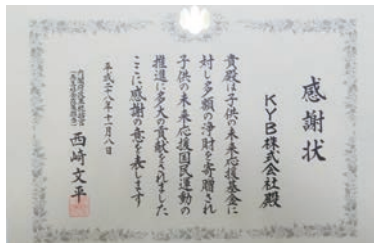 感謝状
KYB株式会社殿
貴殿は子供の未来応援基金に
対し多額の浄財を寄贈され
子供の未来応援国民運動の
推進に多大の貢献をされました
ここに感謝の意を表します
平成二八年十一月八日
西崎文平